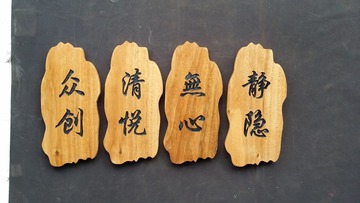 众创
清悦
無心
静隐